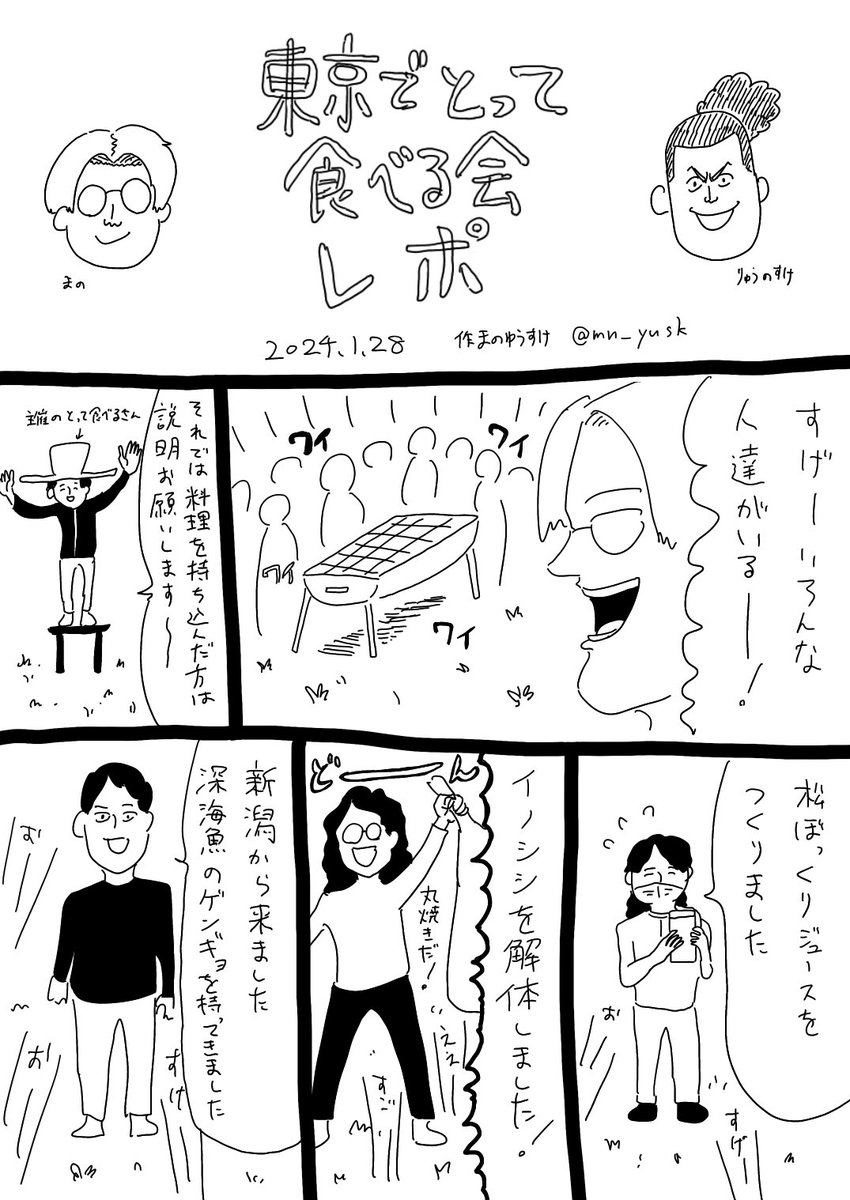 東京でとって
食べる会
レポ
まの
りゅうのすけ
2024.1.28
作まのゆうすけ @mn_yusk
すげーいろんな
人達がいるー!
ワイ
ワイ
ワイ
ワイ
主催のとって食べるさん
それでは料理を持ち込んだ方は
説明お願いします〜
松ぼっくりジュースを
つくりました
お
すげー
どーーん
イノシシを解体しました!
丸焼きだ!
いええ
すご
新潟から来ました
深海魚のゲンギョを持ってきました
お
お
すげ